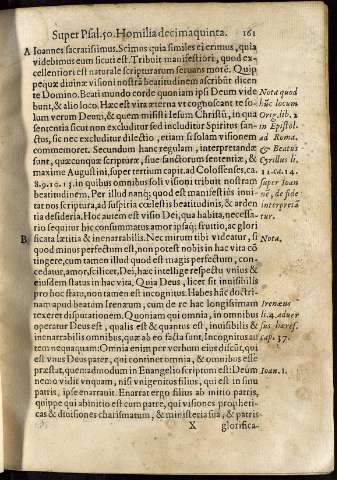 Super Psal. 50. Homilia decimaquinta. 161
A Ioannes sacratissimus. Scimus quia similes ei erimus, quia
videbimus eum sicuti est. Tribuit manifestiori, quod ex-
cellentiori est naturale scripturarum servans morē. Quip
pequæ divinæ visioni nostrā beatitudinem ascribit dicen
te Domino. Beati mundo corde quoniam ipsi Deum vide
bunt, & alio loco. Hæc est vita æterna vt cognoscant te so-
lum verum Deum, & quem misisti Iesum Christū, in qua
sententia sicut non excluditur sed includitur Spiritus san-
ctus, sic nec excluditur dilectio, etiam si solam visionem
commemoret. Secundum hanc regulam, interpretandæ
sunt, quæcunque scripturæ, siue sanctorum sententiæ, &
maxime Augustini, super tertium capit. ad Colossenses, ca.
8.9.10.13. in quibus omnibus soli visioni tribuit nostram
beatitudinem. Per illud nanq; quod est manifestius inui-
tat nos scriptura, ad suspiria cœlestis beatitudinis, & arden
tia desideria. Hoc autem est visio Dei, qua habita, necessa-
rio sequitur hic consummatus amor ipsaq; fruitio, ac glori
B ficata lætitia & inenarrabilis. Nec mirum tibi videatur, si
quod minus perfectum est, non potest nobis in hac vita cō
tingere, cum tamen illud quod est magis perfectum, con-
cedatur, amor, scilicet, Dei, hæc intellige respectu vnius &
eiusdem status in hac vita. Quia Deus, licet sit inuisibilis
pro hoc statu, non tamen est incognitus. Habes hāc doctri-
nam apud beatum Irenæum, cum de re hac longissimam
texeret disputationem. Quoniam qui omnia, in omnibus
operatur Deus est, qualis est & quantus est, inuisibilis &
inenarrabilis omnibus, quæ ab eo facta sunt, Incognitus aū
tem nequaquam. Omnia enim per verbum eius discūt, qui
est vnus Deus pater, qui continet omnia, & omnibus esse
præstat, quemadmodum in Euangelio scriptum est: Deum
nemo vidit vnquam, nisi vnigenitus filius, qui est in sinu
patris, ipse enarrauit. Enarrat ergo filius ab initio patris,
quippe qui ab initio est cum patre, qui visiones propheti-
cas & diuisiones charismatum, & ministeria sua, & patris
X glorifica-
Nota quod
hūc locum
Orig. lib. 2
in Epistol.
ad Roma.
& Beatus
Cyrillus li.
11. ca. 14.
super Ioan
nē, de fide
interpretā
tur.
Nota.
Irenæus
li. 4. aduer
sus hæres.
cap. 37.
Ioan. 1.